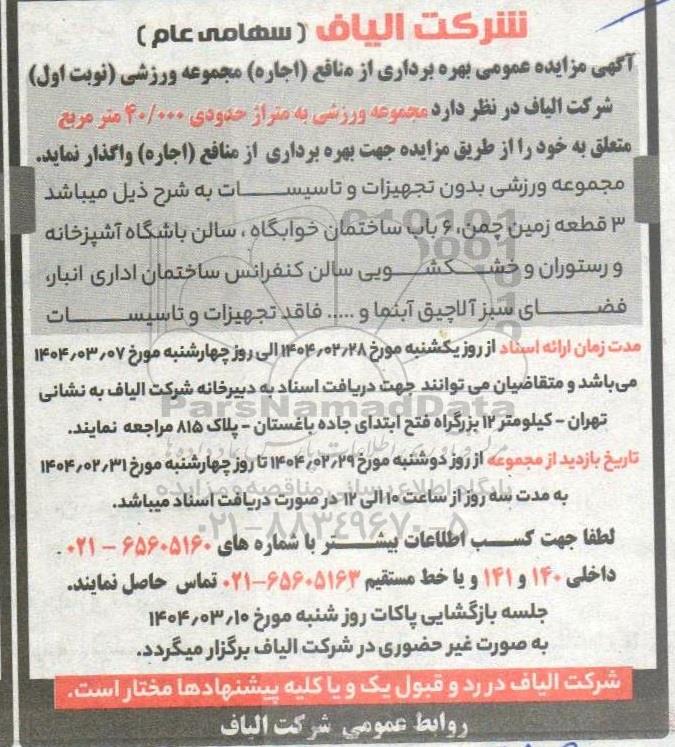 شرکت الیاف (سهامی عام)
آگهی مزایده عمومی بهره برداری از منافع (اجاره) مجموعه ورزشی (نوبت اول)
شرکت الیاف در نظر دارد مجموعه ورزشی به متراژ حدودی ۴۰/۰۰۰ متر مربع
متعلق به خود را از طریق مزایده جهت بهره برداری از منافع (اجاره) واگذار نماید.
مجموعه ورزشی بدون تجهیزات و تاسیسات به شرح ذیل میباشد
۳ قطعه زمین چمن، ۶ باب ساختمان خوابگاه ، سالن باشگاه آشپزخانه
و رستوران و خشکشویی سالن کنفرانس ساختمان اداری انبار،
فضای سبز آلاچیق آبنما و ..... فاقد تجهیزات و تاسیسات
مدت زمان ارائه اسناد از روز یکشنبه مورخ ۱۴۰۴٫۰۲٫۲۸ الی روز چهارشنبه مورخ ۱۴۰۴٫۰۳٫۰۷
می‌باشد و متقاضیان می توانند جهت دریافت اسناد به دبیرخانه شرکت الیاف به نشانی
تهران - کیلومتر ۱۲ بزرگراه فتح ابتدای جاده باغستان - پلاک ۸۱۵ مراجعه نمایند.
تاریخ بازدید از مجموعه از روز دوشنبه مورخ ۱۴۰۴٫۰۲٫۲۹ تا روز چهارشنبه مورخ ۱۴۰۴٫۰۲٫۳۱
به مدت سه روز از ساعت ۱۰ الی ۱۲ در صورت دریافت اسناد میباشد.
لطفا جهت کسب اطلاعات بیشتر با شماره های ۶۵۶۰۵۱۶۰ - ۰۲۱
داخلی ۱۴۰ و ۱۴۱ و یا خط مستقیم ۶۵۶۰۵۱۶۳-۰۲۱ تماس حاصل نمایند.
جلسه بازگشایی پاکات روز شنبه مورخ ۱۴۰۴٫۰۳٫۱۰
به صورت غیر حضوری در شرکت الیاف برگزار میگردد.
شرکت الیاف در رد و قبول یک و یا کلیه پیشنهادها مختار است.
روابط عمومی شرکت الیاف
ParsNamadData
پایگاه اطلاع رسانی مناقصه و مزایده
۰۲۱-۸۸۳۴۹۶۷۰-۵